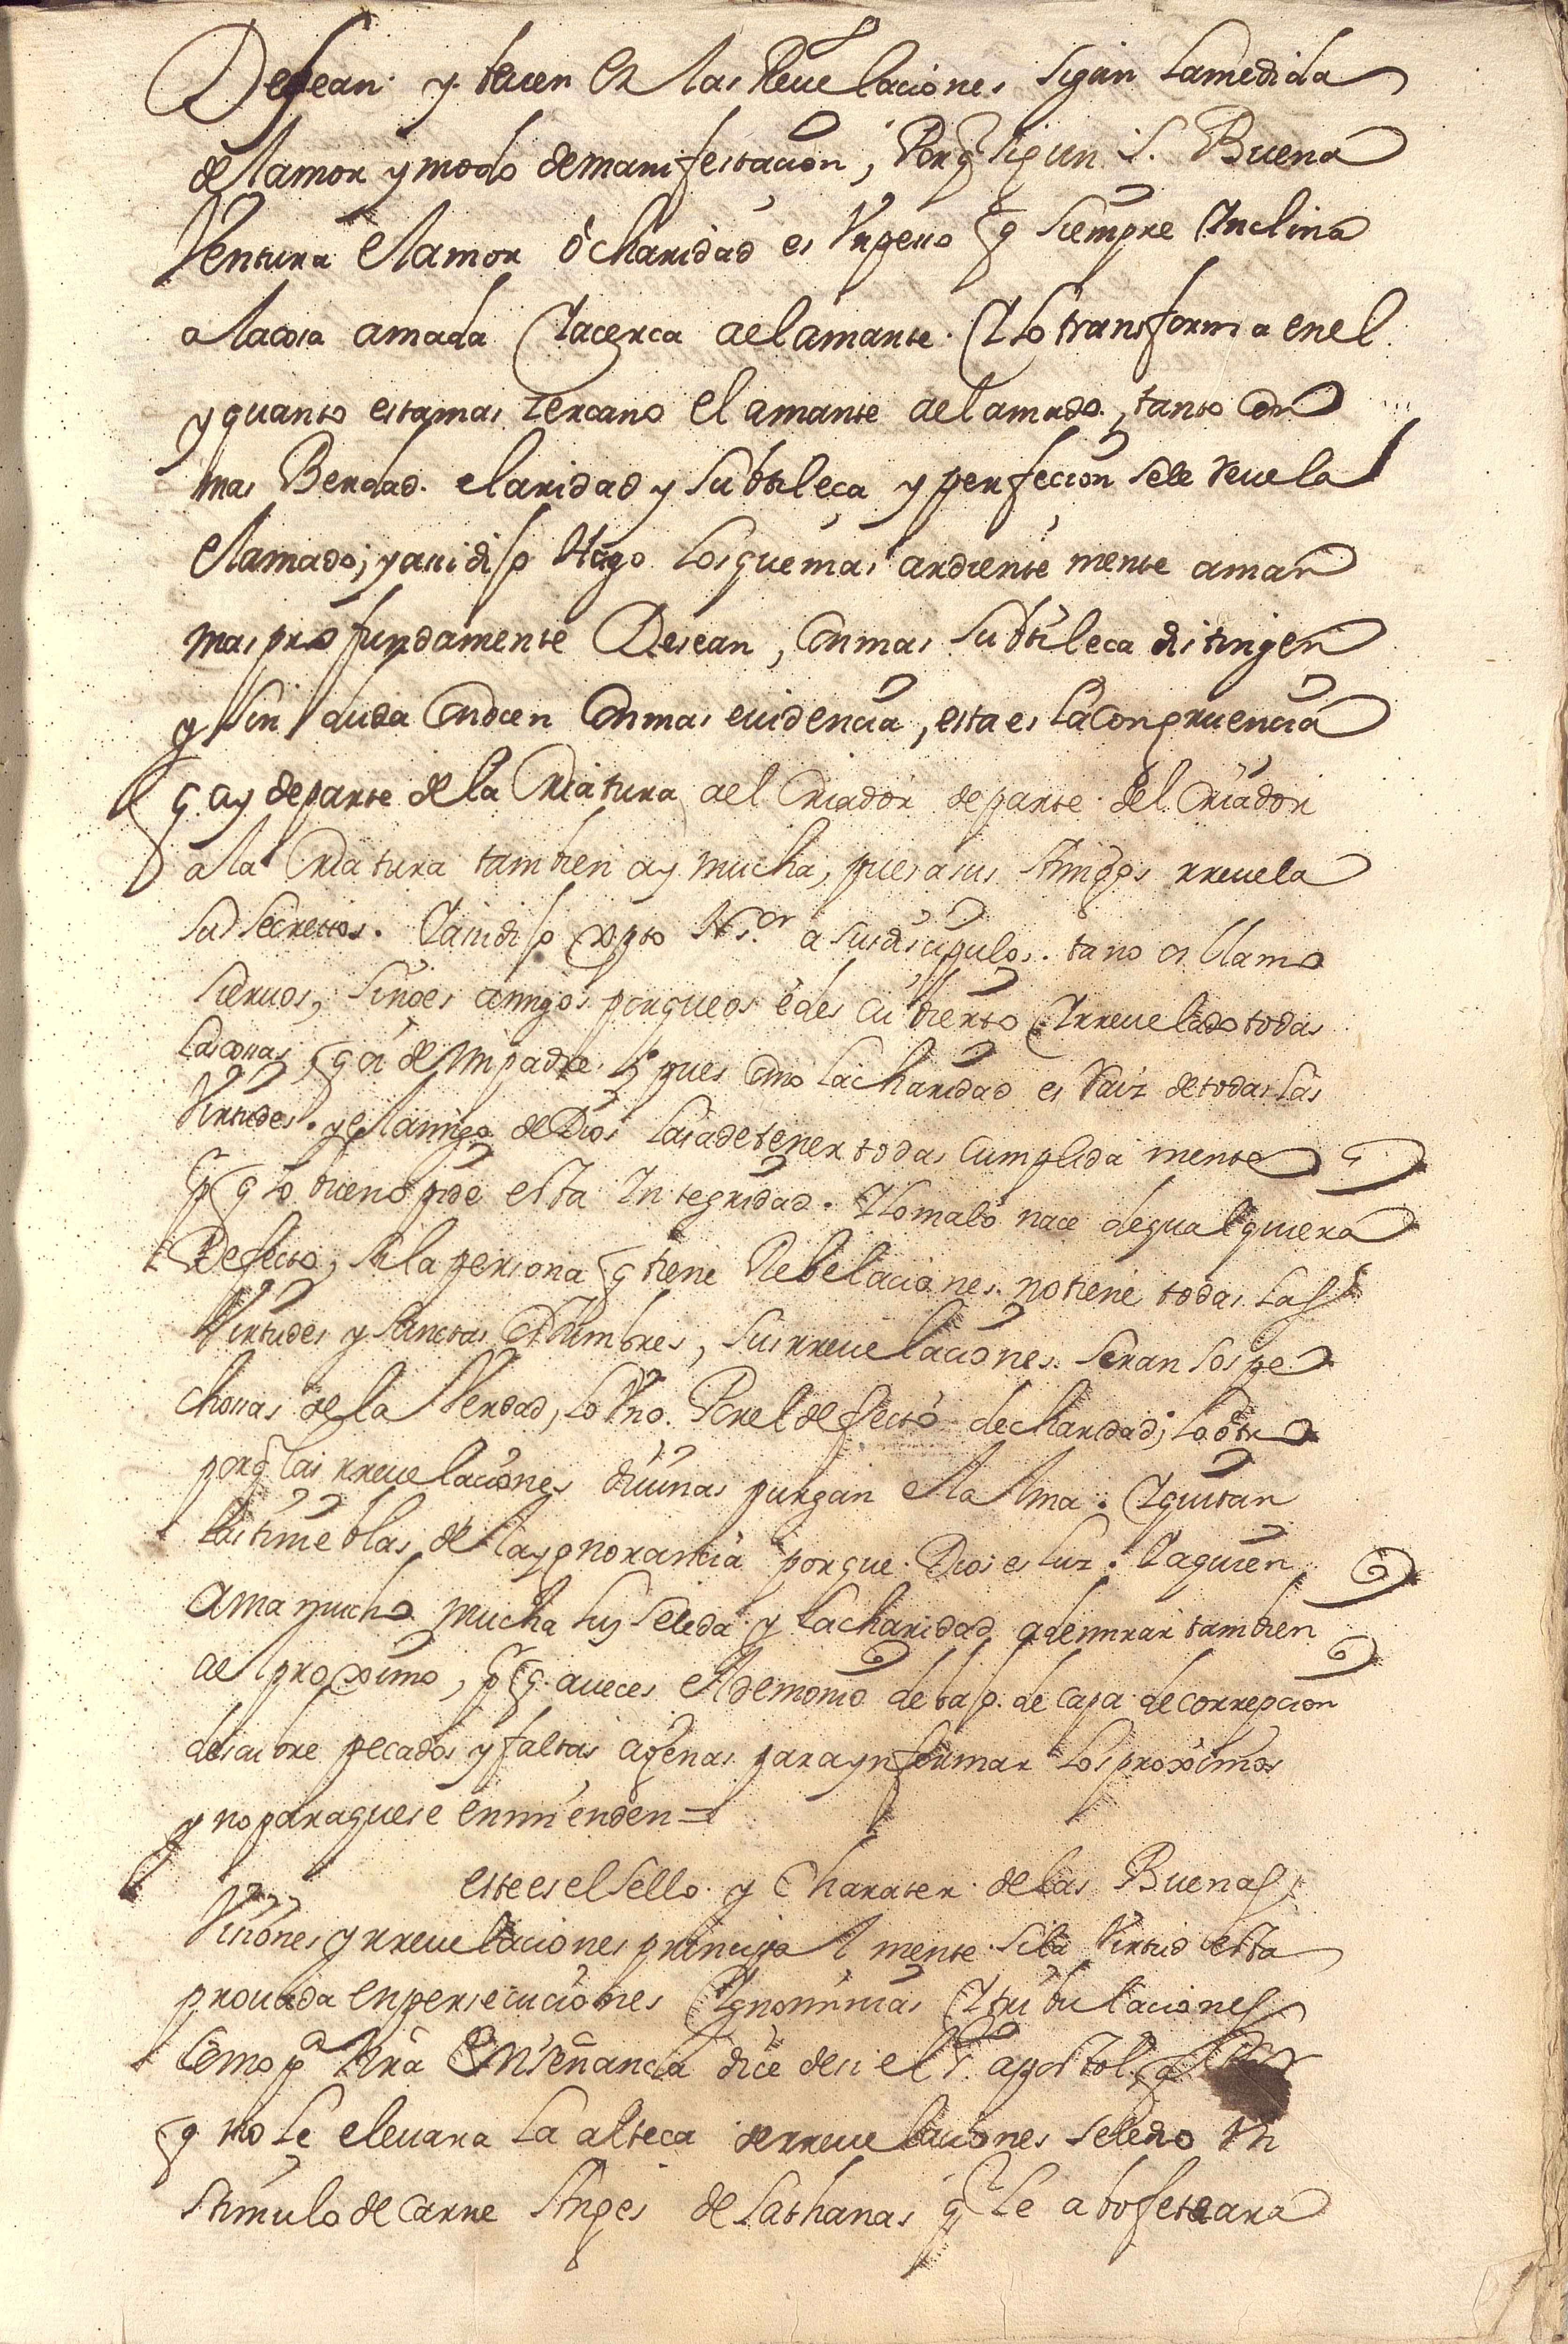 Desean y tienen en las Reuelaciones sigun la medida
de el amor y modo de manifestacion, Porq sigun S. Buena
Ventura el amor ò charidad es Vn peso q siempre Inclina
a la cosa amada Y acerca a el amante. Y lo transforma en el
y quanto esta mas zercano el amante a el amado, tanto con
mas Berdad. claridad y subtileça y perfecion se le reuela
el amado; y assi dijo Hugo Los que mas ardiente mente aman
mas profundamente Desean, con mas subtileca distingen
y sin duda conocen con mas euidencia, esta es la congruencia
q ay de parte de la Criatura a el Criador de parte del Criador
a la Criatura tambien ay mucha, pues a sus Amigos rreuela
sus secretos. Y assi dijo Xpto N S.or a sus discipulos. ya no os llamo
sieruos, sinoes amigos porque os è descubierto Y rreuelado todas
las cosas q oi de mi padre. Y pues como la charidad es Raiz de todas las
Virtudes. y el amigo de Dios las a de tener todas cumplida mente
pq lo bueno pide esta Integridad. Y lo malo nace de qualquiera
Defecto, si la persona q tiene Rebelaciones. no tiene todas las
Virtudes y sanctas costumbres, sus rreuelaciones. seran sospe
chosas de la Verdad, lo Vno. Por el defecto de charidad; lo otro
porq las rreuelaciones diuinas purgan el alma. Y quitan
las tinieblas de la ygnorancia porque. Dios es luz. Y a quien
ama mucho mucha luz se le da y la charidad a de mirar tambien
a el proximo, pq. a ueces el demonio debajo. de capa de correpcion
descubre pecados y faltas ajenas para ynformar los proximos
y no para que se enmienden =
este es el sello. y Charater de las Buenas
Visiones y rreuelaciones principal mente. si la Virtud esta
prouada en persecuciones Ygnominias Y tribulaciones
Como pa nra Enseñança dice de si el S. apostol. q
q no le eleuara la alteca de rreuelaciones se le dio Vn
stimulo de carne Angel de sathanas q le abofeteara